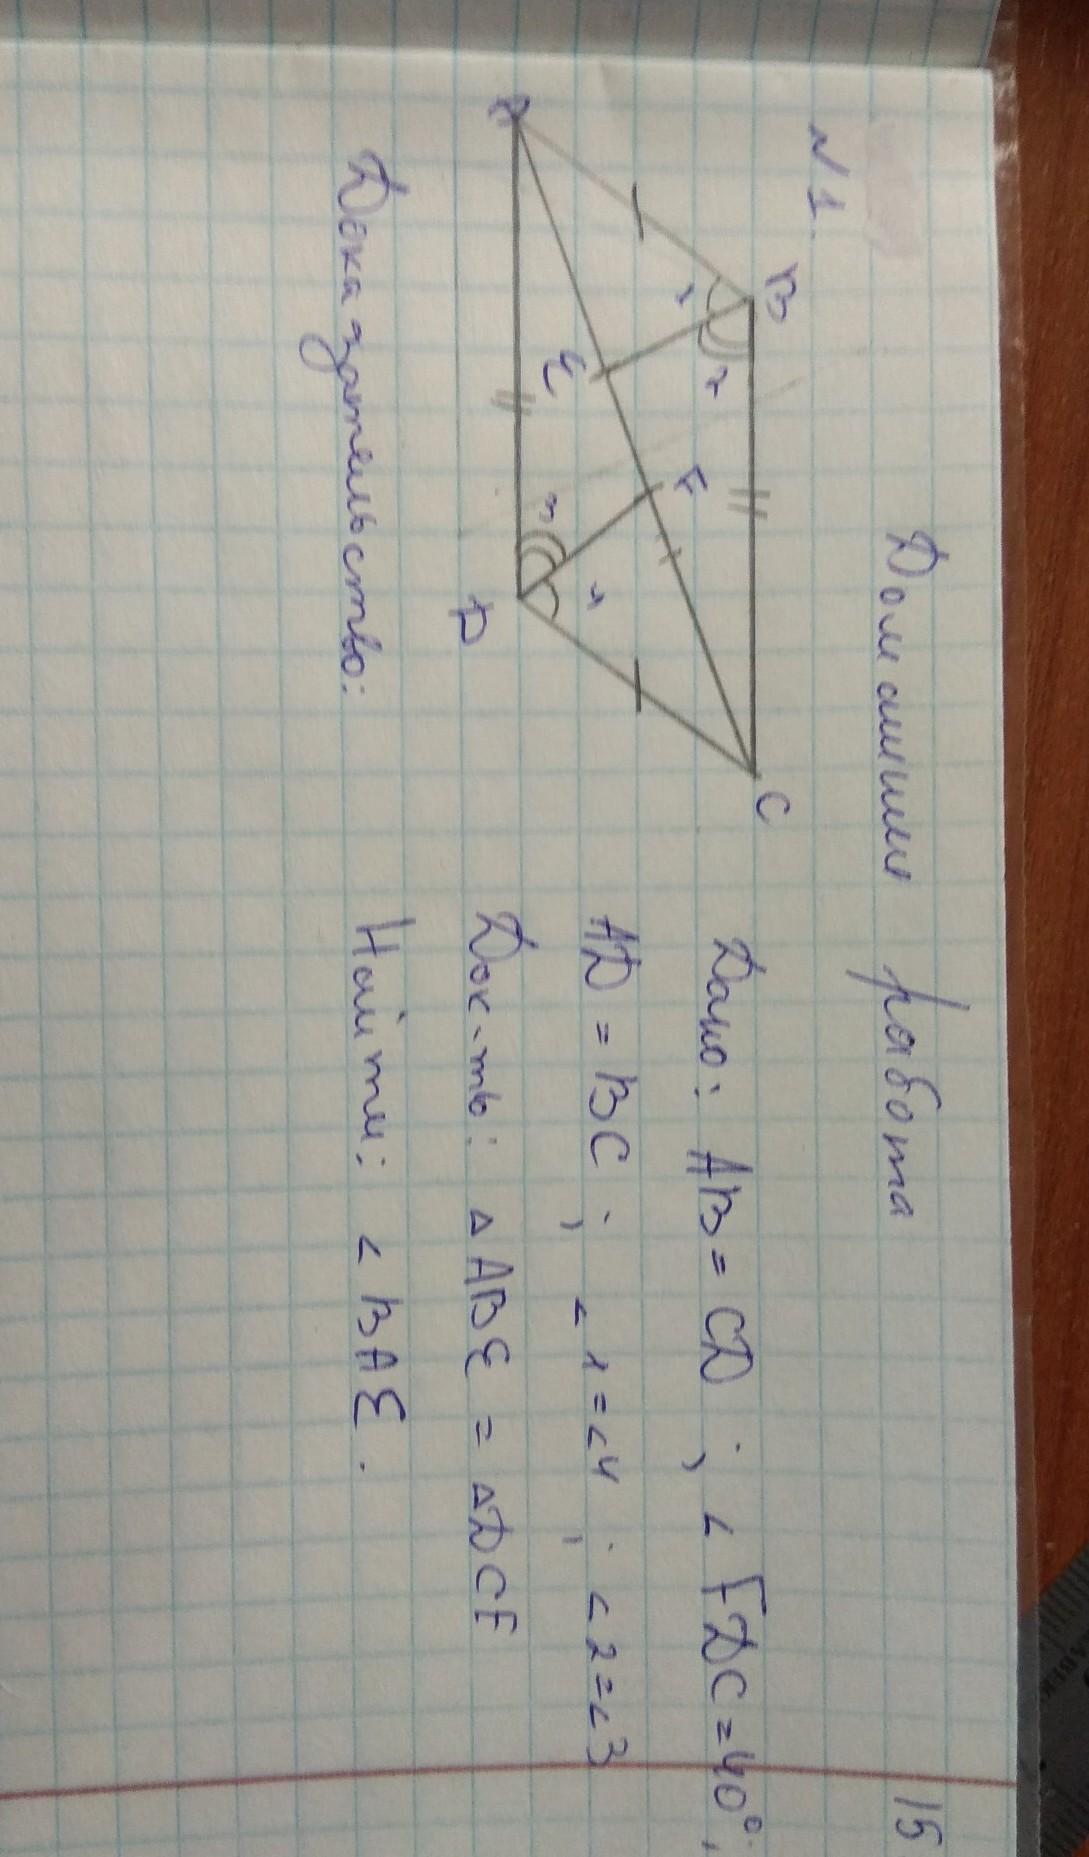 15
Домашняя работа
№1.
Дано: AB = CD ; < FDC = 40°,
AD = BC ; < 1 = < 4 ; < 2 = < 3
Док-ть: △ ABE = △DCF
Найти: < BAE .
B
C
1
2
F
E
4
3
A
D
Доказательство: